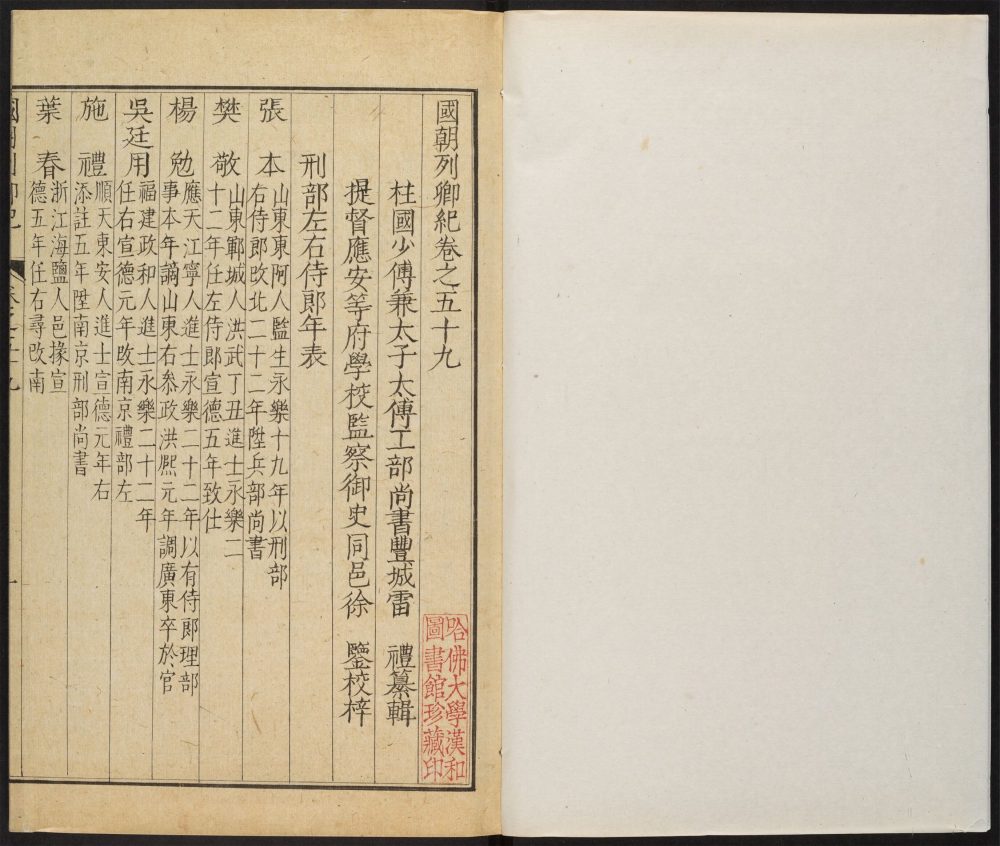 國朝列卿紀卷之五十九
柱國少傅兼太子太傅工部尚書豐城雷 禮纂輯
提督應安等府學校監察御史同邑徐 鑒校梓
刑部左右侍郎年表
張 本
山東東阿人監生永樂十九年以刑部
右侍郎改北二十二年陞兵部尚書
樊 敬
山東鄆城人洪武丁丑進士永樂二
十二年任左侍郎宣德五年致仕
楊 勉
應天江寧人進士永樂二十二年以有侍郎理部
事本年謫山東右叅政洪熈元年調廣東卒於官
吳廷用
福建政和人進士永樂二十二年
任右宣德元年改南京禮部左
施 禮
順天東安人進士宣德元年右
添註五年陞南京刑部尚書
葉 春
浙江海鹽人邑掾宣
德五年任右尋改南
哈佛大學漢和
圖書館珍藏印